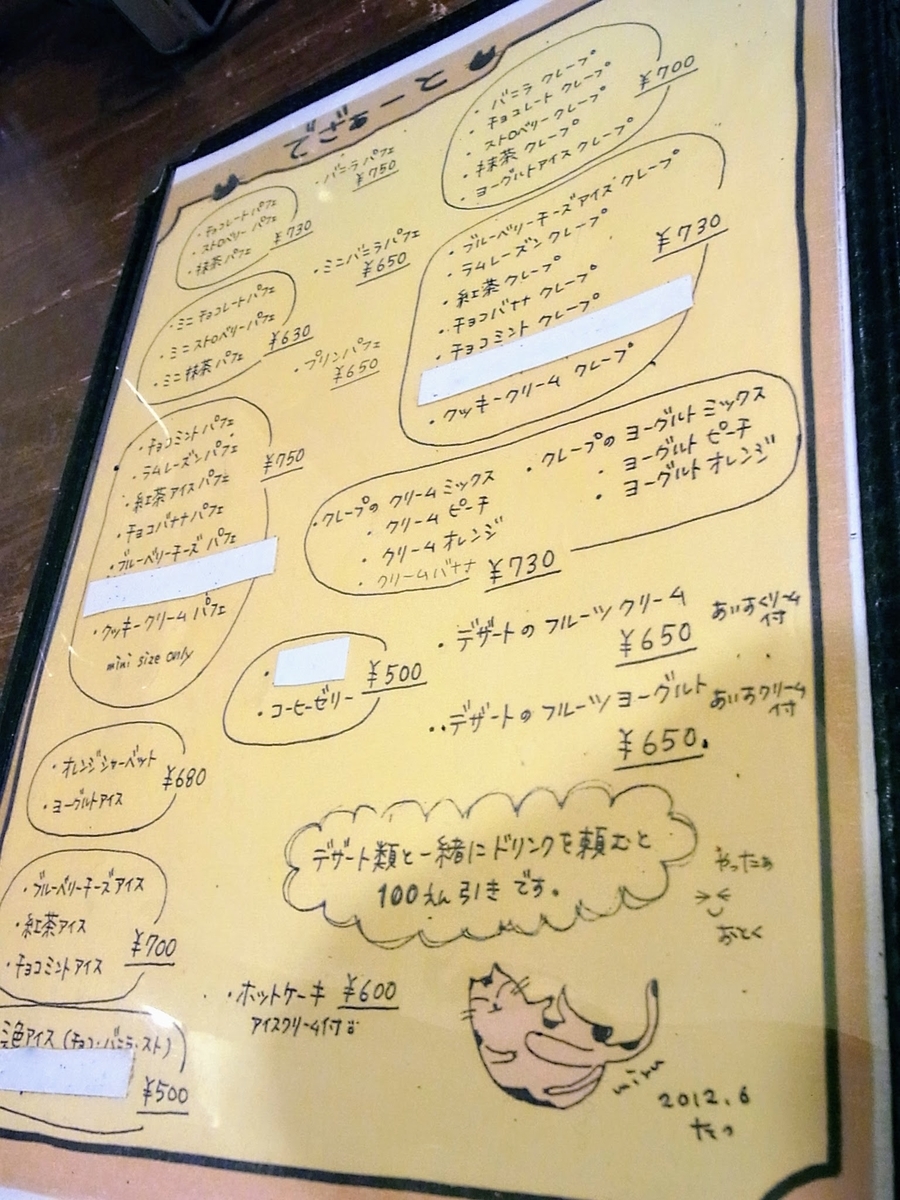 ・バニラパフェ
¥750
・チョコレートパフェ
・ストロベリーパフェ
・抹茶パフェ ¥730
・ミニバニラパフェ
¥650
・ミニチョコレートパフェ
・ミニストロベリーパフェ
・ミニ抹茶パフェ ¥630
・プリンパフェ
¥650
・チョコミントパフェ
・ラムレーズンパフェ
・紅茶アイスパフェ
・チョコバナナパフェ
・ブルーベリーチーズパフェ
・クッキークリームパフェ
mini size only
¥750
・オレンジシャーベット
・ヨーグルトアイス
¥680
・ブルーベリーチーズアイス
・紅茶アイス
・チョコミントアイス
¥700
三色アイス(チョコ・バニラ・スト)
¥500
・バニラクレープ
・チョコレートクレープ
・ストロベリークレープ
・抹茶クレープ
・ヨーグルトアイスクレープ
¥700
・ブルーベリーチーズアイスクレープ
・ラムレーズンクレープ
・紅茶クレープ
・チョコバナナクレープ
・チョコミントクレープ
・クッキークリームクレープ
¥730
・クレープのクリームミックス
・クリームピーチ
・クリームオレンジ
・クリームバナナ
・クレープのヨーグルトミックス
・ヨーグルトピーチ
・ヨーグルトオレンジ
¥730
・コーヒーゼリー
¥500
・デザートのフルーツクリーム
¥650
あいすくりーむ
付
・・デザートのフルーツヨーグルト
¥650.
あいすクリーム
付
デザート類と一緒にドリンクを頼むと
100えん引きです。
やったぁ
おとく
・ホットケーキ ¥600
アイスクリーム付
miru
2012.6